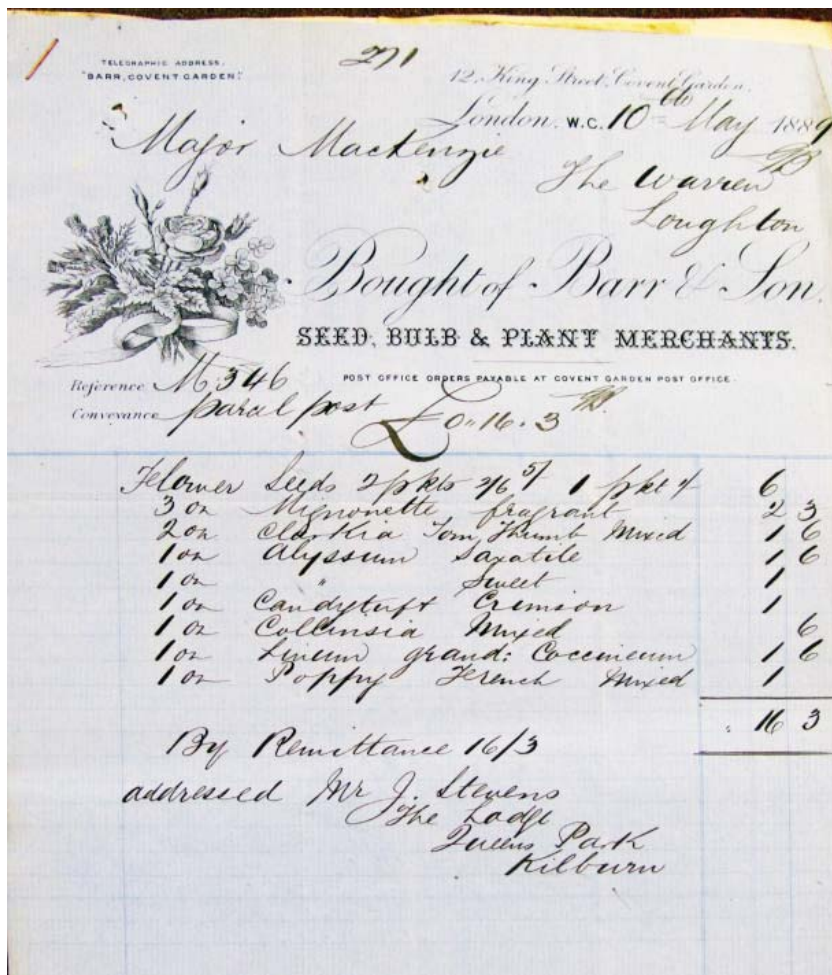 TELEGRAPHIC ADDRESS.
"BARR, COVENT GARDEN."
271
12, King Street, Covent Garden,
London, W.C. 10th May 1889
Major Mackenzie
The Warren
Loughton
Bought of Barr & Son,
SEED, BULB & PLANT MERCHANTS.
POST OFFICE ORDERS PAYABLE AT COVENT GARDEN POST OFFICE.
Reference M.346
Conveyance parcel post
£0"16"3
Flower Seeds 2 pkts 2/6 5/ 1 pkt 1/ 6
3 oz Mignonette fragrant 2 3
2 oz Clarkia Tom Thumb Mixed 1 6
1 oz Alyssum Saxatile 1 6
1 oz " Sweet 1
1 oz Candytuft Crimson 1
1 oz Collinsia Mixed 6
1 oz Linum grand: Coccineum 1 6
1 oz Poppy French Mixed 1
16 3
By Remittance 16/3
addressed Mr J. Stevens
The Lodge
Queens Park
Kilburn